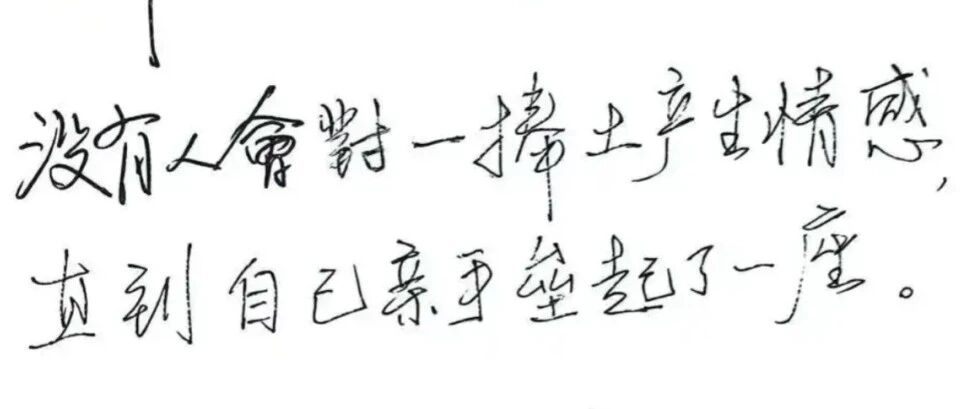 没有人會對一捧土产生情感,
直到自己亲手垒起了一座。